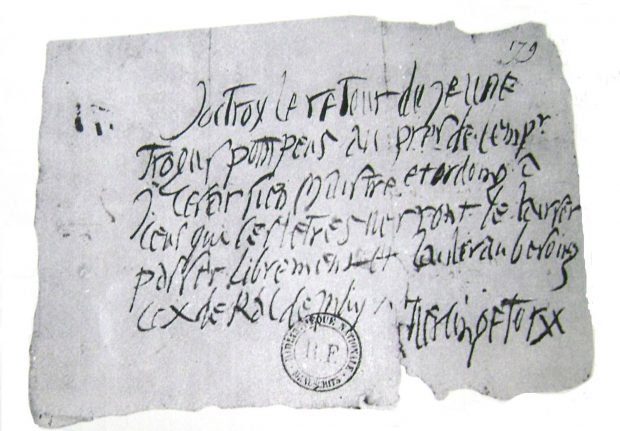 179
Joctroy le retour du jeune
Trogus pompeus au pres de lempr
j. Cesar sien maistre et ordong a
iceus qui ces letres verront de laisser
passer librement et laider au besoing
ce x de Kal de may Vercingetorx
BIBLIOTHEQUE NATIONALE
R.F.
MANUSCRITS